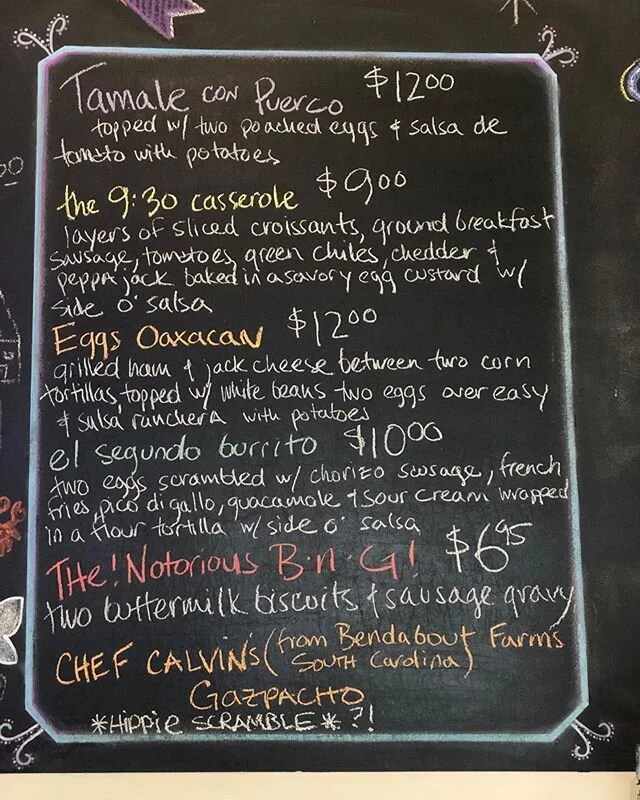 Tamale con Puerco $12.00
topped w/ two poached eggs & salsa de
tomato with potatoes
the 9:30 casserole $9.00
layers of sliced croissants, ground breakfast
sausage, tomatoes, green chiles, chedder &
peppa jack baked in a savory egg custard w/
side o' salsa
Eggs Oaxacan $12.00
grilled ham & jack cheese between two corn
tortillas, topped w/ white beans two eggs over easy
& salsa ranchera with potatoes
el segundo burrito $10.00
two eggs scrambled w/ chorizo sausage, french
fries, pico di gallo, guacamole & sour cream wrapped
in a flour tortilla w/ side o' salsa
THe! Notorious B.n.G! $6.95
two buttermilk biscuits & sausage gravy
CHEF CALVIN'S (from Bendabout Farms
South Carolina)
GAZPACHO
*HIPPIE SCRAMBLE* ?!